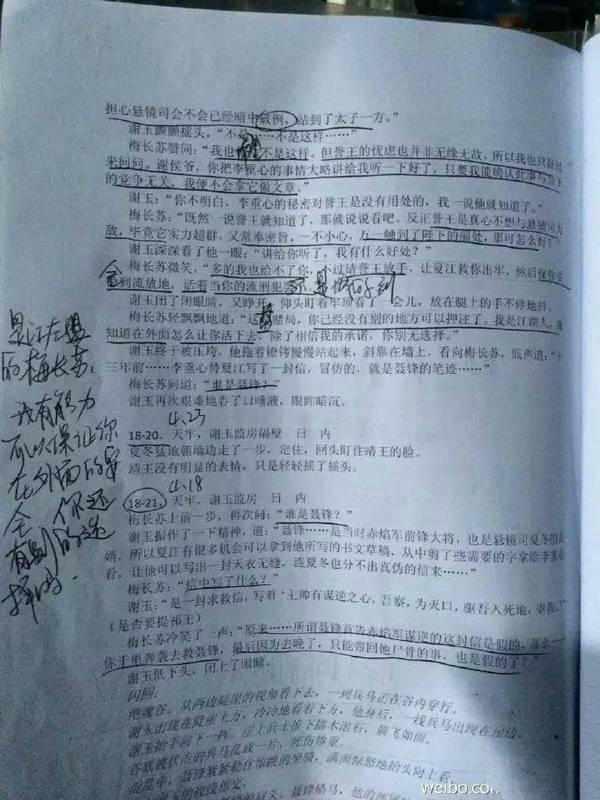 担心悬镜司会不会已经暗中破例，站到了太子一方。”
谢玉颤颤摇头，“不是……不是这样……”
梅长苏赞同：“我也 不是这样。但誉王的忧虑也并非无缘无故，所以我也只好
来问问。谢侯爷，你把李重心的事情大略讲给我听一下好了，只要我能确认此事与
的党争无关，我便不会拿它做文章。”
谢玉：“你不明白，李重心的秘密对誉王是没有用处的，我一说他就知道了。”
梅长苏：“既然一说誉王就知道了，那就说说看吧，反正誉王是真心不想与悬镜司为
敌，毕竟它实力超群，又常奉密旨，一不小心，万一触到了陛下的痛处，那可怎么好？”
谢玉深深看了他一眼：“讲给你听了，我有什么好处？”
梅长苏微笑，“多的我也给不了你，不过请誉王放手，让夏江救你出牢，然后保你安
全到流放地，活着当你的流刑犯
谢玉闭了闭眼睛，又睁开，仰头盯着牢顶看了一会儿，放在腿上的手不停地抖。
梅长苏轻飘飘地道：“这 赌局，你已经没有别的地方可以押注了。我是江湖人，
知道在外面怎么让你活下去，除了相信我的承诺，你别无选择。”
谢玉终于被压垮，他拖着镣铐慢慢站起来，斜靠在墙上，看向梅长苏，低声道：“十
三年前……李重心替夏江写了一封信，冒仿的，就是聂锋的笔迹……”
梅长苏问道：“谁是聂锋？”
谢玉再次艰难地吞了口唾液，眼眸暗沉。
4.23
18-20. 天牢，谢玉监房隔壁 日 内
夏冬猛地朝墙边走了一步，定住，回头盯住靖王的脸。
靖王没有明显的表情，只是轻轻摇了摇头。
4.18
18-21. 天牢，谢玉监房 日 内
梅长苏上前一步，再次问：“谁是聂锋？”
谢玉振作了一下精神，道：“聂锋……是当时赤焰军前锋大将，也是悬镜司夏冬的
婿，所以夏江有很多机会可以拿到他所写的书文草稿，从中剪了些需要的字拿给李重心
看，让他可以写出一封天衣无缝，连夏冬也分不出真伪的信来……”
梅长苏：“信中写了什么？”
谢玉：“是一封求救信，写着‘主帅有谋逆之心，吾察，为灭口，驱吾入死地，
（是否要提祁王）
梅长苏冷笑了一声：“原来……所谓聂锋首告赤焰军谋逆的这封信是假的，那么
你千里奔袭去救聂锋，最后因为去晚了，只能带回他尸骨的事，也是假的了？”
谢玉低下头，闭上了眼睛。
闪回：
绝魂谷。从两边陡崖的视角看下去，一列兵马正在谷内穿行。
谢玉出现在陡崖上方，冷冷地看着下方，他身后，一线兵马出现在崖边。
是江左盟
的梅长苏，
我有能力
可以保证你
在外面的安
全，你还
有别的选
择吗
weibo.co..